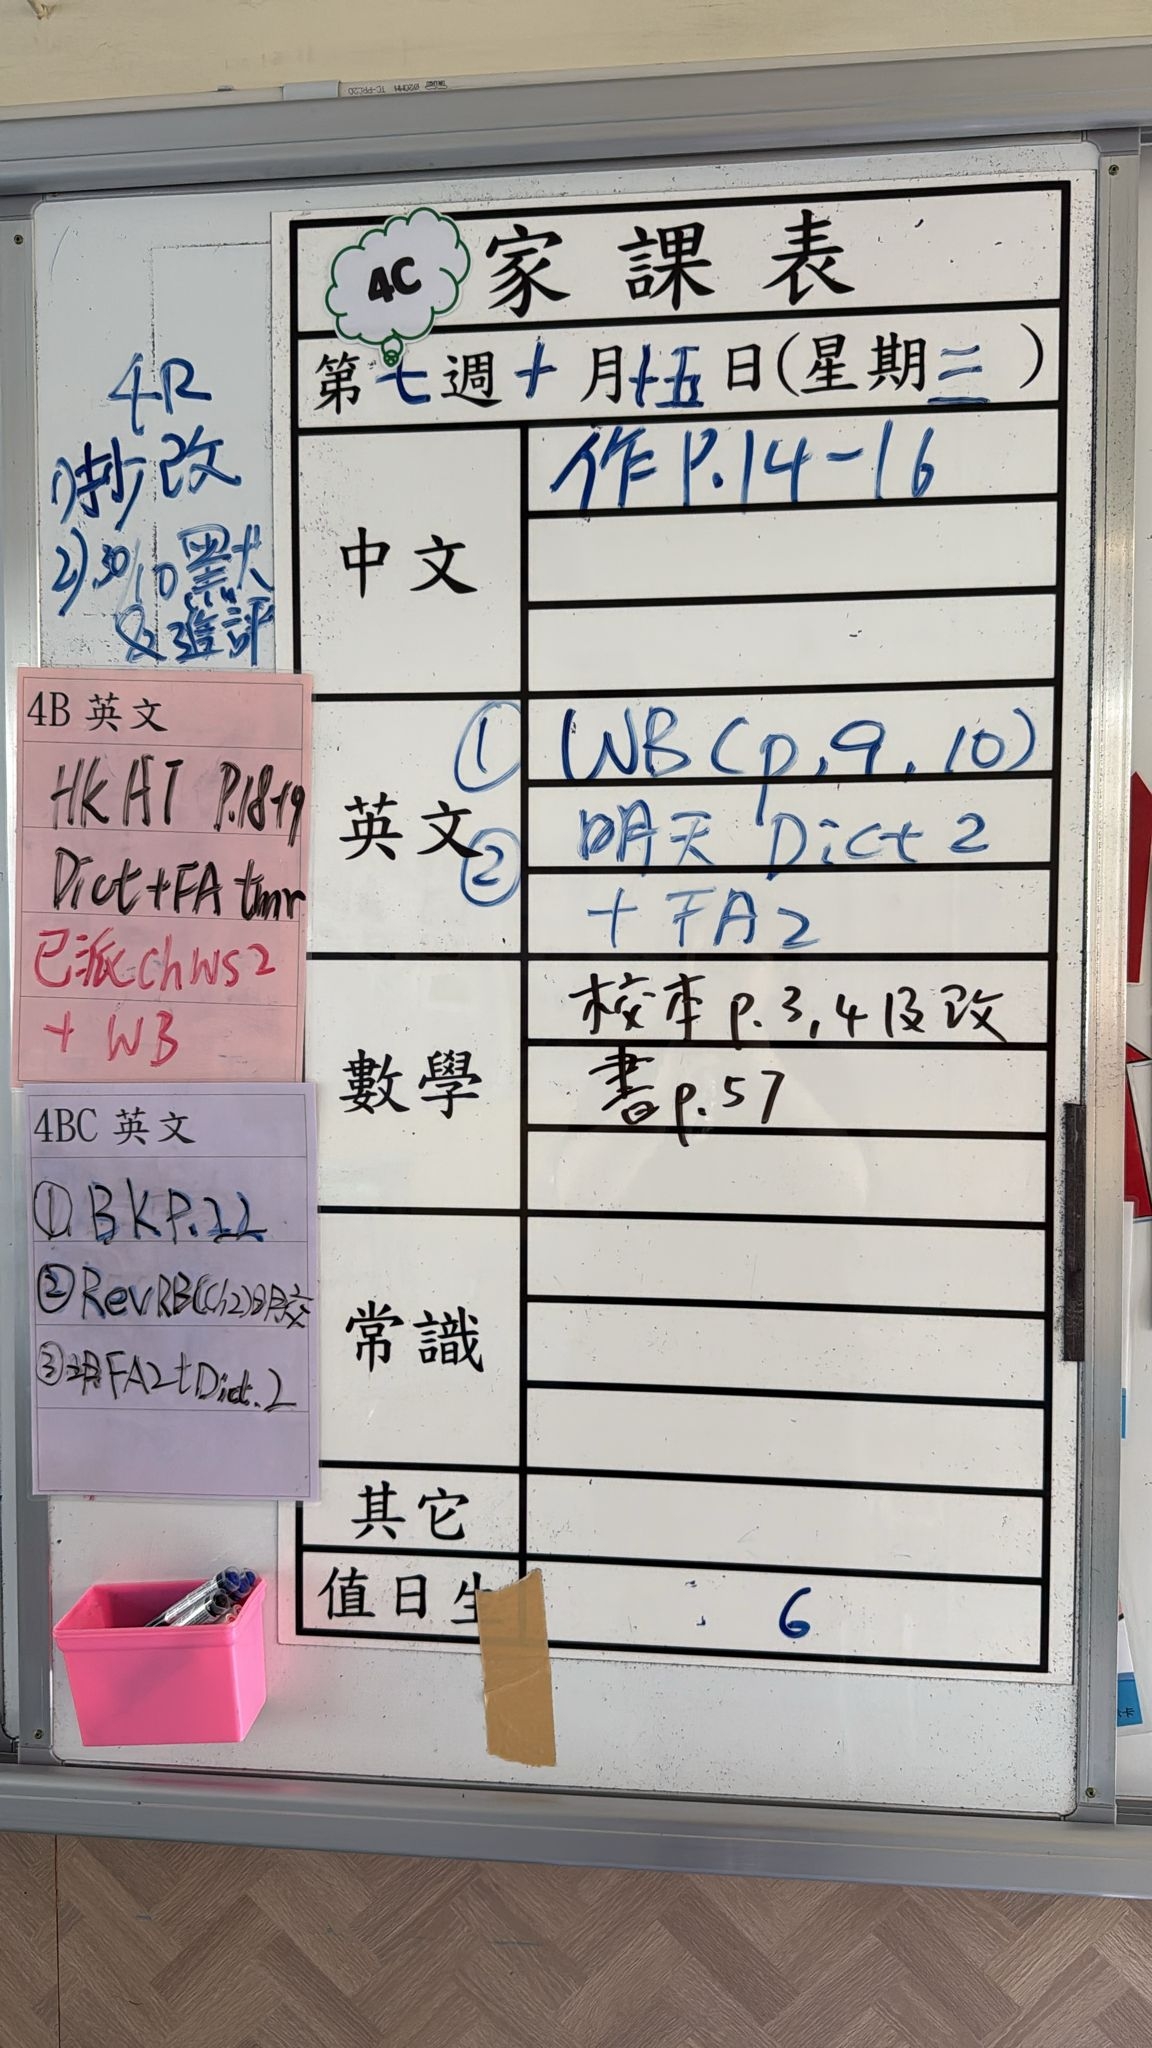 4C 家課表
第七週十月十五日(星期三)
中文
作P.14-16
英文
① WB(p.9,10)
② 明天 Dict 2
+ FA2
數學
校本p.3,4及改
書p.57
常識
其它
值日生
6
4R
1)抄改
2)30/10默
&進評
4B 英文
HKAT P.18-19
Dict+FA tmr
已派ChWS2
+ WB
4BC 英文
① BK P.22
② RevRB(Ch2)明交
③ 明FA2+Dict.2